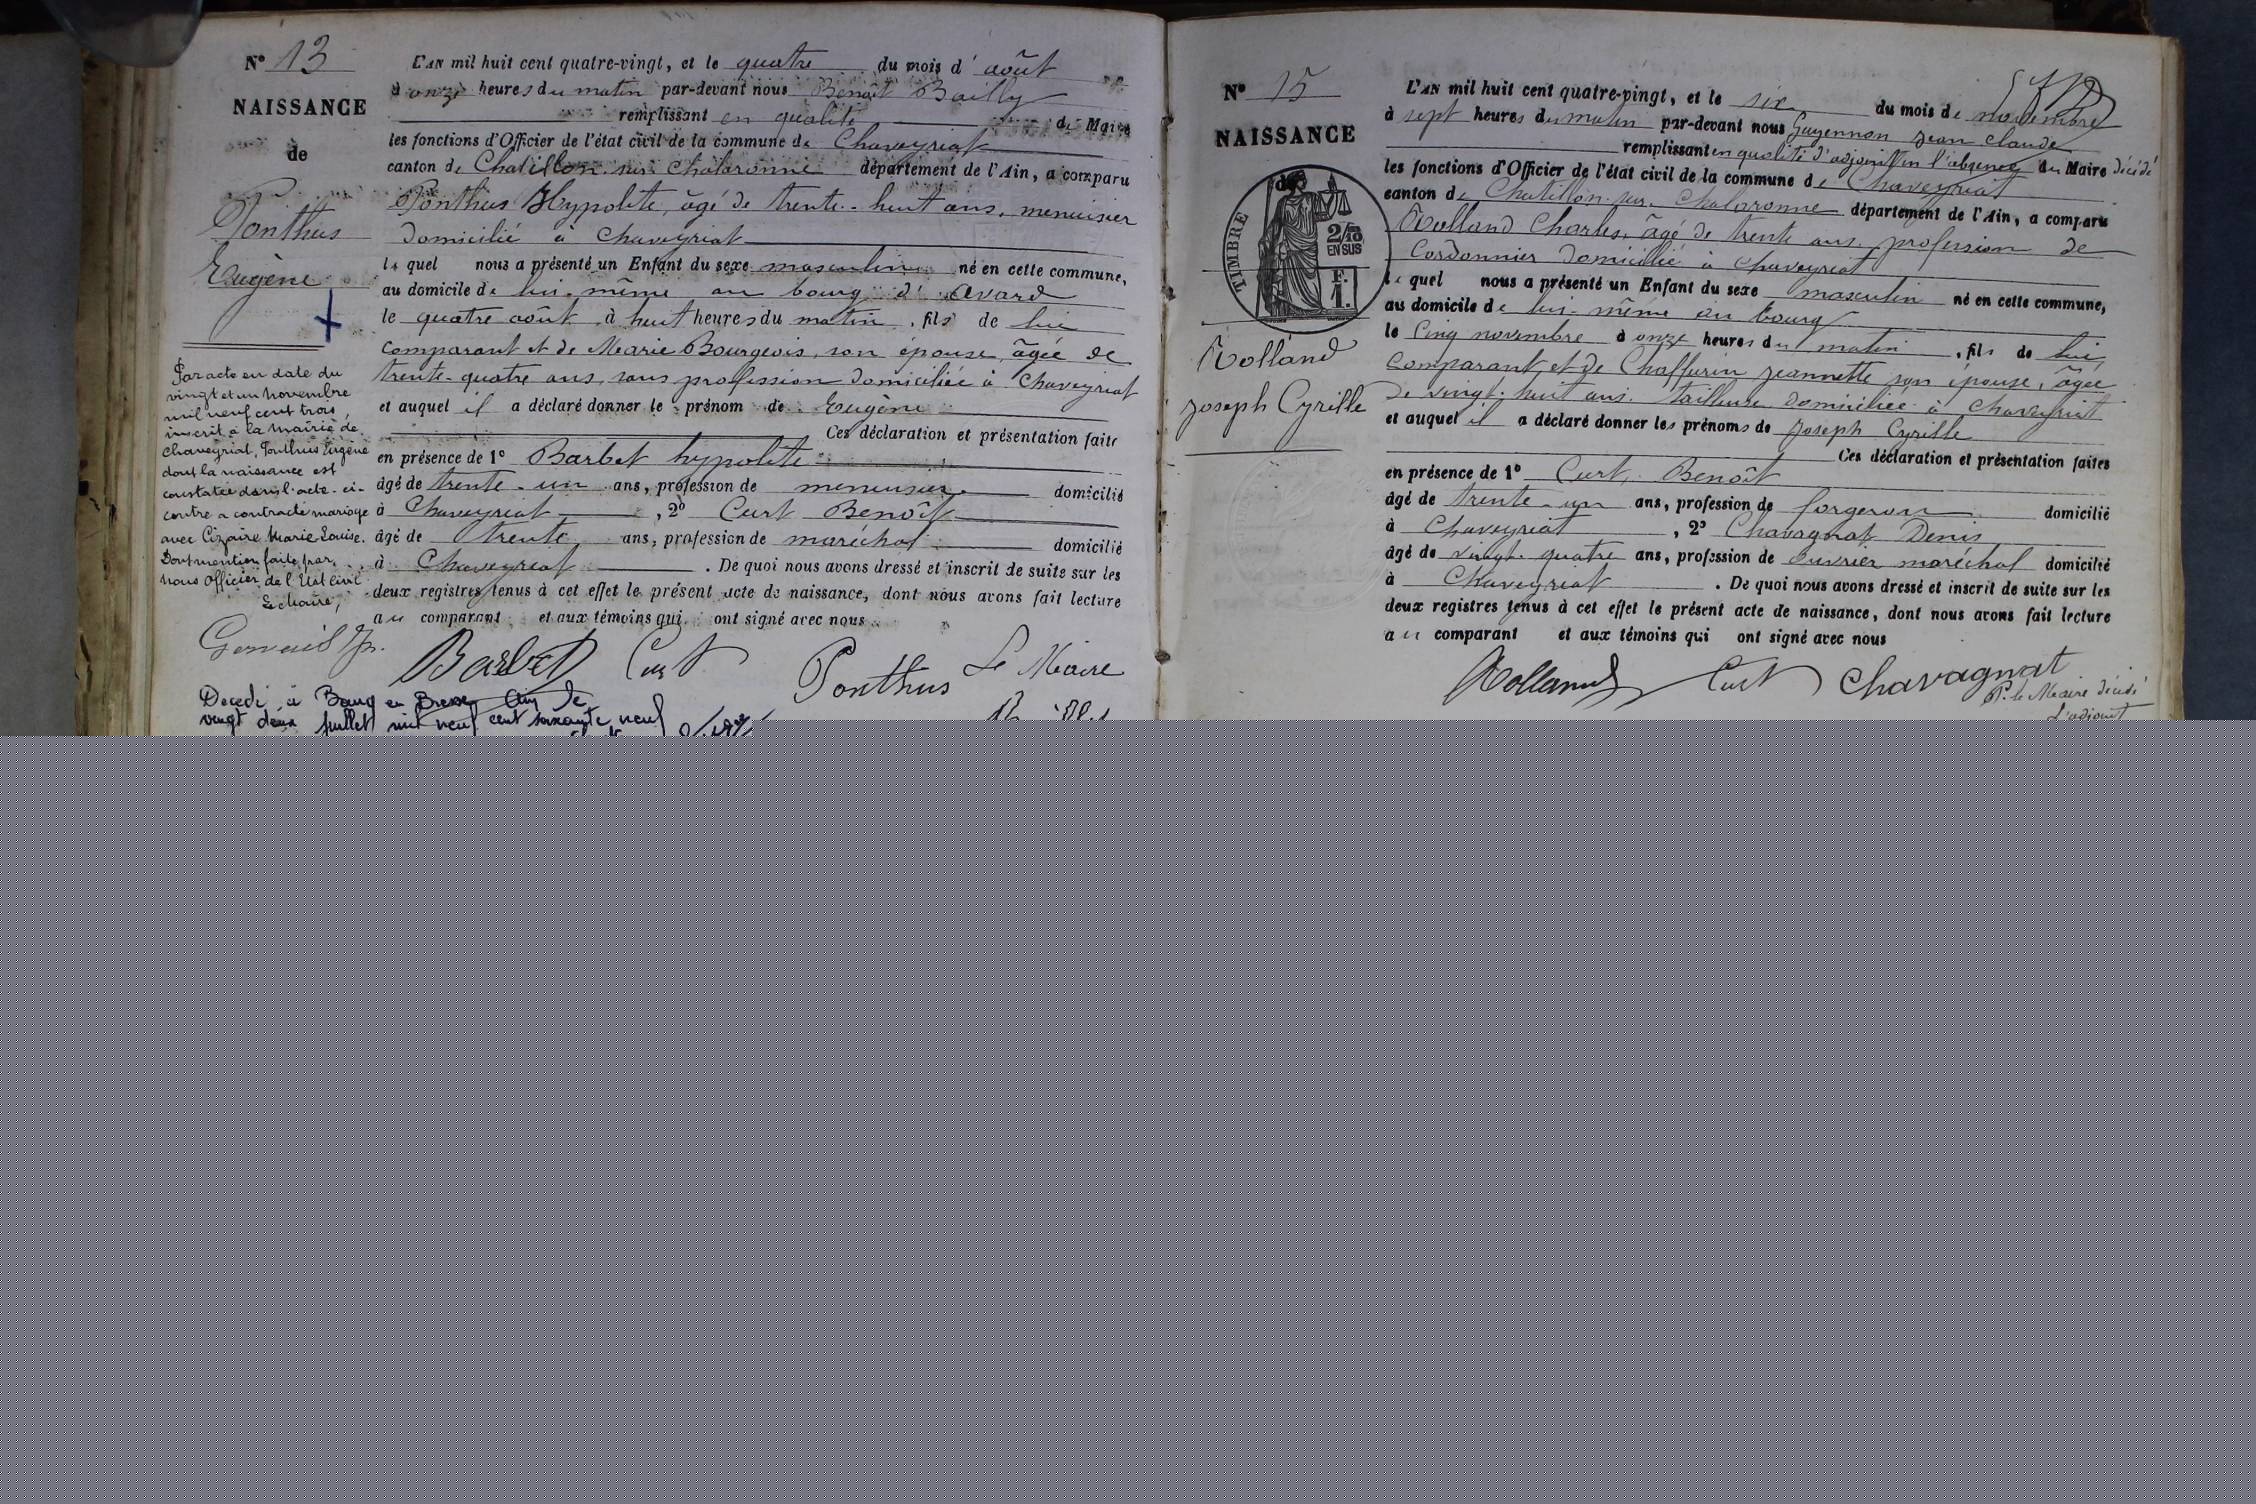 N° 13
NAISSANCE
de
Ponthus
Eugène
Par acte en date du
vingt et un novembre
mil neuf cent trois,
inscrit à la mairie de
Chaveyriat, Ponthus Eugène
dont la naissance est
constatée dans l'acte ci-
contre a contracté mariage
avec Cizaire Marie Louise.
Dont mention faite par
nous Officier de l'Etat Civil
Le Maire,
L'AN mil huit cent quatre-vingt, et le quatre du mois d'août
à onze heures du matin par-devant nous Benoît Bailly
remplissant en qualité de Maire
les fonctions d'Officier de l'état civil de la commune de Chaveyriat
canton de Chatillon sur Chalaronne département de l'Ain, a comparu
Ponthus Hypolite, âgé de trente-huit ans, menuisier
domicilié à Chaveyriat
lequel nous a présenté un Enfant du sexe masculin né en cette commune,
au domicile de lui-même au bourg d'Avard
le quatre août à huit heures du matin, fils de lui
comparant et de Marie Bourgeois, son épouse, âgée de
trente-quatre ans, sans profession domiciliée à Chaveyriat
et auquel il a déclaré donner le prénom de Eugène
Ces déclaration et présentation faite
en présence de 1° Barbet hypolite
âgé de trente-un ans, profession de menuisier domicilié
à Chaveyriat, 2° Curt Benoît
âgé de trente ans, profession de maréchal domicilié
à Chaveyriat. De quoi nous avons dressé et inscrit de suite sur les
deux registres tenus à cet effet le présent acte de naissance, dont nous avons fait lecture
au comparant et aux témoins qui ont signé avec nous
Barbet Curt Ponthus Le Maire
Décédé à Bourg en Bresse Ain le
vingt deux juillet mil neuf cent soixante neuf
N° 15
NAISSANCE
de
TIMBRE
2/10
EN SUS
1 F.
Rolland
Joseph Cyrille
L'AN mil huit cent quatre-vingt, et le six du mois de novembre
à sept heures du matin par-devant nous Guyennon Jean Claude
remplissant en qualité d'adjoint en l'absence du Maire décédé
les fonctions d'Officier de l'état civil de la commune de Chaveyriat
canton de Chatillon-sur-Chalaronne département de l'Ain, a comparu
Rolland Charles, âgé de trente ans, profession de
Cordonnier domicilié à Chaveyriat
lequel nous a présenté un Enfant du sexe masculin né en cette commune,
au domicile de lui-même au bourg
le cinq novembre à onze heures du matin, fils de lui
comparant, et de Chaffurin Jeannette son épouse, âgée
de vingt-huit ans, tailleuse domiciliée à Chaveyriat
et auquel il a déclaré donner les prénoms de Joseph Cyrille
Ces déclaration et présentation faites
en présence de 1° Curt, Benoît
âgé de trente-un ans, profession de forgeron domicilié
à Chaveyriat, 2° Chavagnat Denis
âgé de vingt-quatre ans, profession de ouvrier maréchal domicilié
à Chaveyriat. De quoi nous avons dressé et inscrit de suite sur les
deux registres tenus à cet effet le présent acte de naissance, dont nous avons fait lecture
au comparant et aux témoins qui ont signé avec nous
Rolland Curt Chavagnat
P. le Maire décédé
L'adjoint